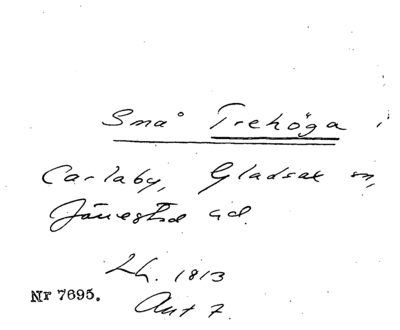 Små Trehöga i
Carlaby, Gladsax sn,
Järrestad hd.
Lh. 1813
Akt 7.
Nr 7695.